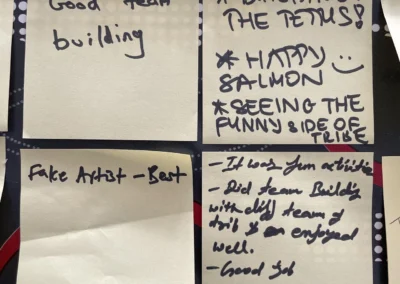 Good team
building
THE TETMS!
* HAPPY
SALMON
* SEEING THE
FUNNY SIDE OF
TRIBE
Fake Artist - Best
- It was fun activities
- Did team Buildig
with diff team of
trib & enjoyed
well.
- Good Job